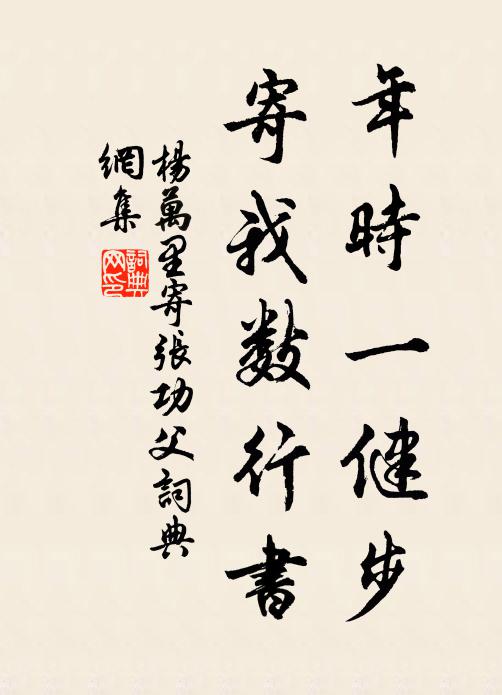 年時一健步
寄我數行書
楊萬里寄張功父詞典
網集
詞典
网印